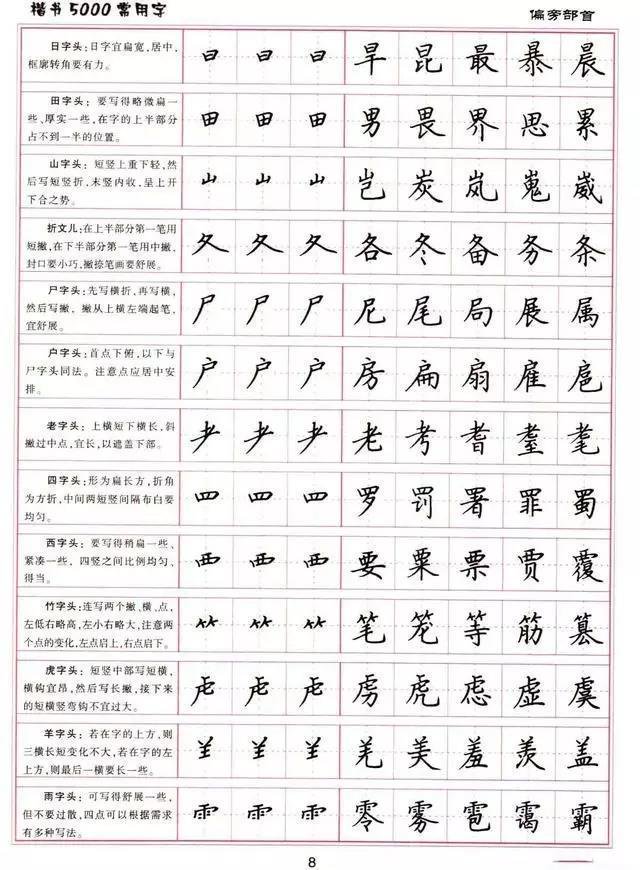 楷书5000常用字
偏旁部首
日字头：日字宜扁宽，居中，
框廓转角要有力。
日 日 日 旱 昆 最 暴 晨
田字头：要写得略微扁一
些，厚实一些，在字的上半部分
占不到一半的位置。
田 田 田 男 畏 界 思 累
山字头：短竖上重下轻，然
后写短竖折，末竖内收，呈上开
下合之势。
山 山 山 岂 炭 岚 嵬 崴
折文儿：在上半部分第一笔用
短撇，在下半部分第一笔用中撇，
封口要小巧，撇捺笔画要舒展。
夂 夂 夂 各 冬 备 务 条
尸字头：先写横折，再写横，
然后写撇，撇从上横左端起笔，
宜舒展。
尸 尸 尸 尼 尾 局 展 属
户字头：首点下俯，以下与
尸字头同法。注意点应居中安
排。
户 户 户 房 扁 扇 雇 扈
老字头：上横短下横长，斜
撇过中点，宜长，以遮盖下部。
耂 耂 耂 老 考 耆 耋 耄
四字头：形为扁长方，折角
为方折，中间两短竖间隔布白要
均匀。
罒 罒 罒 罗 罚 署 罪 蜀
西字头：要写得稍扁一些、
紧凑一些，四竖之间比例均匀、
得当。
覀 覀 覀 要 粟 票 贾 覆
竹字头：连写两个撇、横、点，
左低右略高，左小右略大，注意两
个点的变化，左点启上，右点启下。
⺮ ⺮ ⺮ 笔 笼 等 筋 篡
虎字头：短竖中部写短横，
横钩宜昂，然后写长撇，接下来
的短横竖弯钩不宜过大。
虍 虍 虍 虏 虎 虑 虚 虞
羊字头：若在字的上方，则
三横长短变化不大，若在字的左
上方，则最后一横要长一些。
⺷ ⺷ ⺷ 羌 美 羞 羡 盖
雨字头：可写得舒展一些，
但不要过散，四点可以根据需求
有多种写法。
⻗ ⻗ ⻗ 零 雾 雹 霭 霸
8